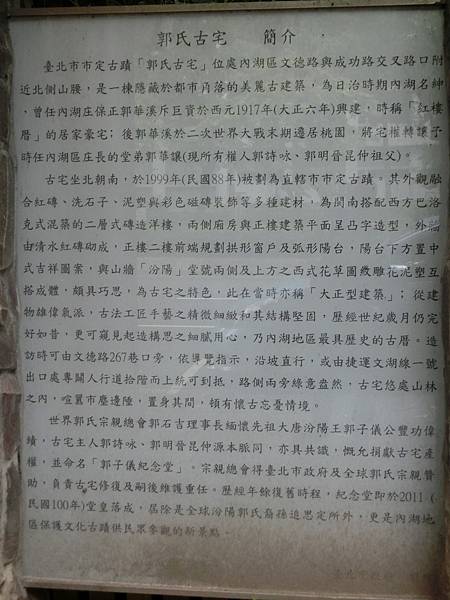 郭氏古宅 簡介
臺北市市定古蹟「郭氏古宅」位處內湖區文德路與成功路交叉路口附
近北側山腰，是一棟隱藏於都市角落的美麗古建築，為日治時期內湖名紳
、曾任內湖庄保正郭華溪斥巨資於西元1917年(大正六年)興建，時稱「紅樓
厝」的居家豪宅；後郭華溪於二次世界大戰末期遷居桃園，將宅權轉讓予
時任內湖區庄長的堂弟郭華讓(現所有權人郭詩咏、郭明晉昆仲祖父)。
古宅坐北朝南，於1999年(民國88年)被劃為直轄市市定古蹟。其外觀融
合紅磚、洗石子、泥塑與彩色磁磚裝飾等多種建材，為閩南搭配西方巴洛
克式混築的二層式磚造洋樓，兩側廂房與正樓建築平面呈凸字造型，外牆
由清水紅磚砌成，正樓二樓前端規劃拱形窗戶及弧形陽台，陽台下方置中
式吉祥圖案，與山牆「汾陽」堂號兩側及上方之西式花草圖徽雕花泥塑互
搭成體，頗具巧思，為古宅之特色，此在當時亦稱「大正型建築」；從建
物雄偉氣派，古法工匠手藝之精微細緻和其結構堅固，歷經世紀歲月仍完
好如昔，更可窺見起造構思之細膩用心，乃內湖地區最具歷史的古厝。造
訪時可由文德路267巷口旁，依導覽指示，沿坡直行，或由捷運文湖線一號
出口處專闢人行道拾階而上統可到抵，路側兩旁綠意盎然，古宅悠處山林
之內，喧囂市塵邊陲，置身其間，頓有懷古忘憂情境。
世界郭氏宗親總會郭石吉理事長緬懷先祖大唐汾陽王郭子儀公豐功偉
績，古宅主人郭詩咏、郭明晉昆仲源本脈同，亦具共識，慨允捐獻古宅產
權，並命名「郭子儀紀念堂」。宗親總會得臺北市政府及全球郭氏宗親贊
助，負責古宅修復及嗣後維護重任。歷經年餘復舊時程，紀念堂即於2011(
民國100年)堂皇落成，屆除是全球汾陽郭氏裔孫追思定所外，更是內湖地
區保護文化古蹟供民眾參觀的新景點。